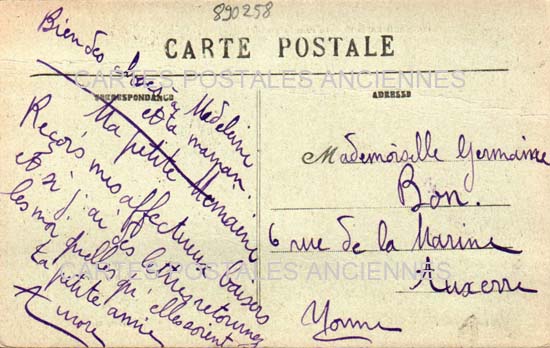 890258
CARTE POSTALE
CARTES POSTALES ANCIENNES
CORRESPONDANCE
ADRESSE
Bien des choses à Madeleine
et ta maman.
Ma petite
Reçois mes affectueux baisers
et si j'ai des lettres retournes
les moi quelles qu'elles soient
ta petite amie
Mademoiselle Germaine
Bon.
6 rue de la Marine
Auxerre
Yonne
CARTES POSTALES ANCIENNES